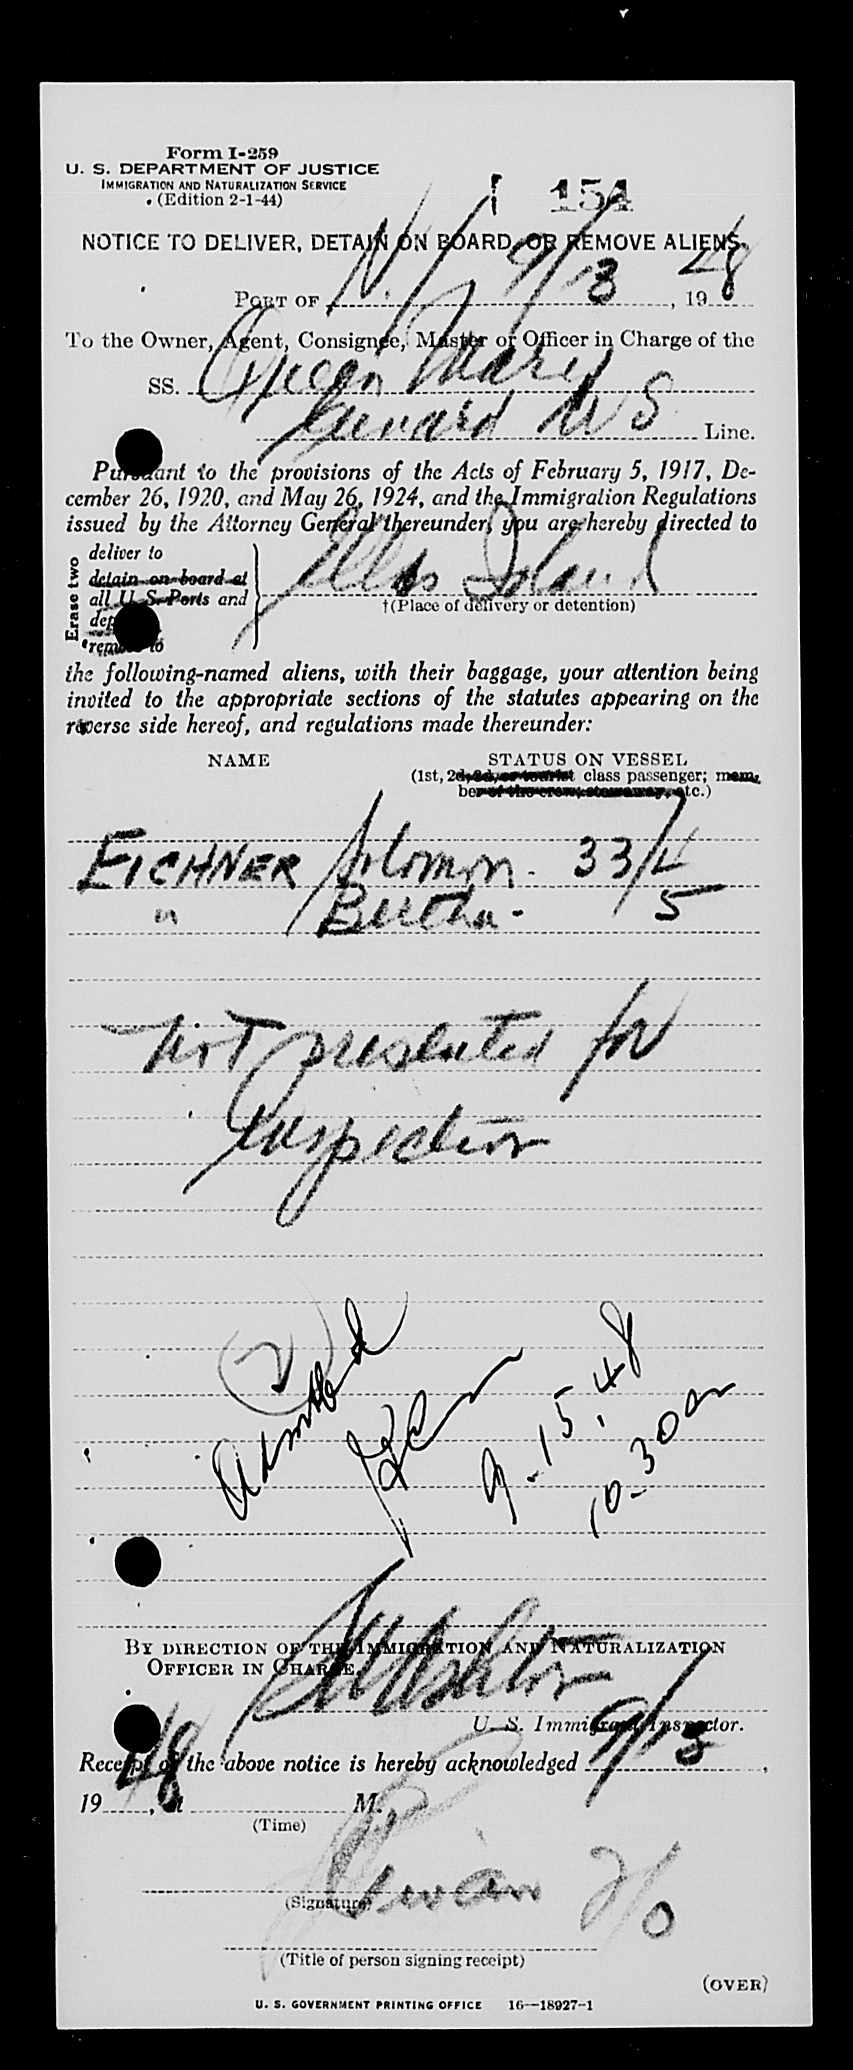 Form I-259
U. S. DEPARTMENT OF JUSTICE
IMMIGRATION AND NATURALIZATION SERVICE
(Edition 2-1-44)
154
NOTICE TO DELIVER, DETAIN ON BOARD, OR REMOVE ALIENS.
PORT OF N.Y. 9/13, 1948
To the Owner, Agent, Consignee, Master or Officer in Charge of the
SS. Queen Mary
Cunard W S Line.
Pursuant to the provisions of the Acts of February 5, 1917, De-
cember 26, 1920, and May 26, 1924, and the Immigration Regulations
issued by the Attorney General thereunder, you are hereby directed to
Erase two
deliver to
detain on board at
all U. S. Ports and
dep
*remove to
Ellis Island
†(Place of delivery or detention)
the following-named aliens, with their baggage, your attention being
invited to the appropriate sections of the statutes appearing on the
reverse side hereof, and regulations made thereunder:
NAME
STATUS ON VESSEL
(1st, 2d, 3d, or tourist class passenger; mem-
ber of the crew, stowaway, etc.)
EICHNER Solomon - 33/4
" Bertha - 5
not presented for
inspection
2
Admitted
9-15-48
10-30 am
BY DIRECTION OF THE IMMIGRATION AND NATURALIZATION
OFFICER IN CHARGE.
U. S. Immigrant Inspector.
Receipt of the above notice is hereby acknowledged 9/13,
1948, at M.
(Time)
(Signature)
(Title of person signing receipt)
(OVER)
U. S. GOVERNMENT PRINTING OFFICE 16—18927-1